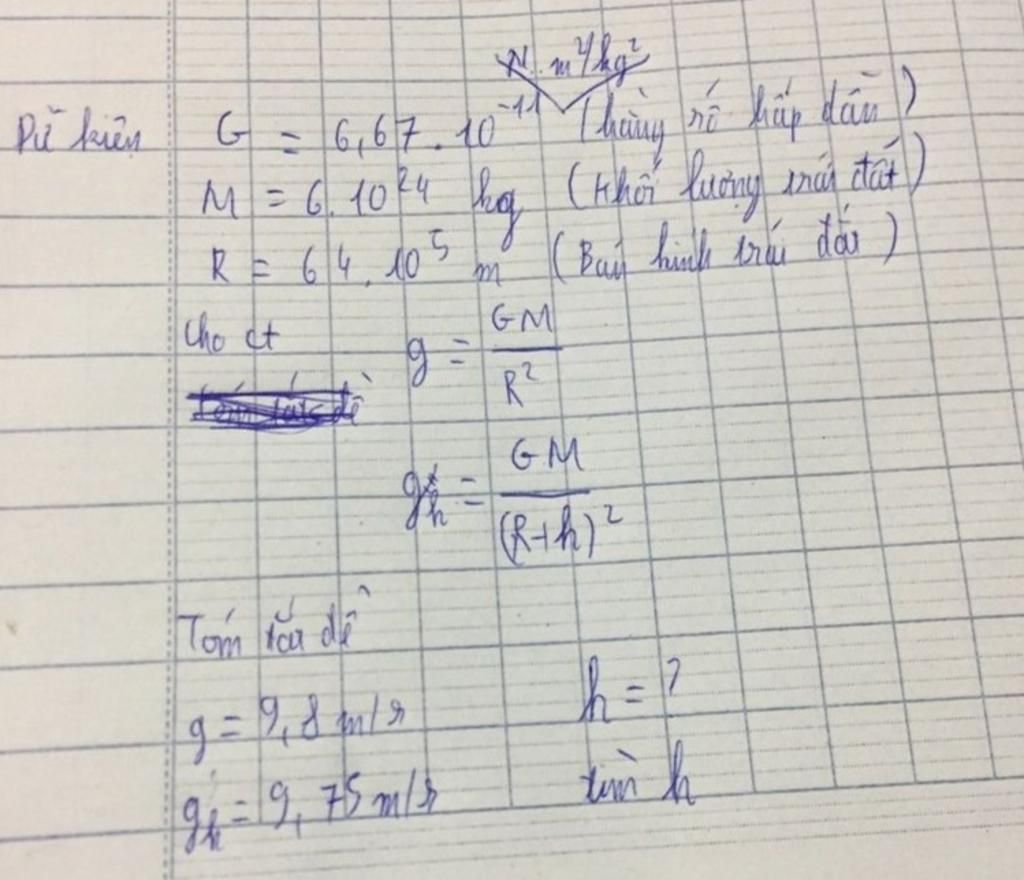 N.m²/kg²
Dữ kiện G = 6,67.10⁻¹¹ (hằng số hấp dẫn)
M = 6.10²⁴ kg (Khối lượng trái đất)
R = 64.10⁵ m (Bán kính trái đất)
Cho ct g = GM/R²
gₕ = GM/(R+h)²
Tóm tắt đề
g = 9,8 m/s h = ?
gₕ = 9,75 m/s tìm h